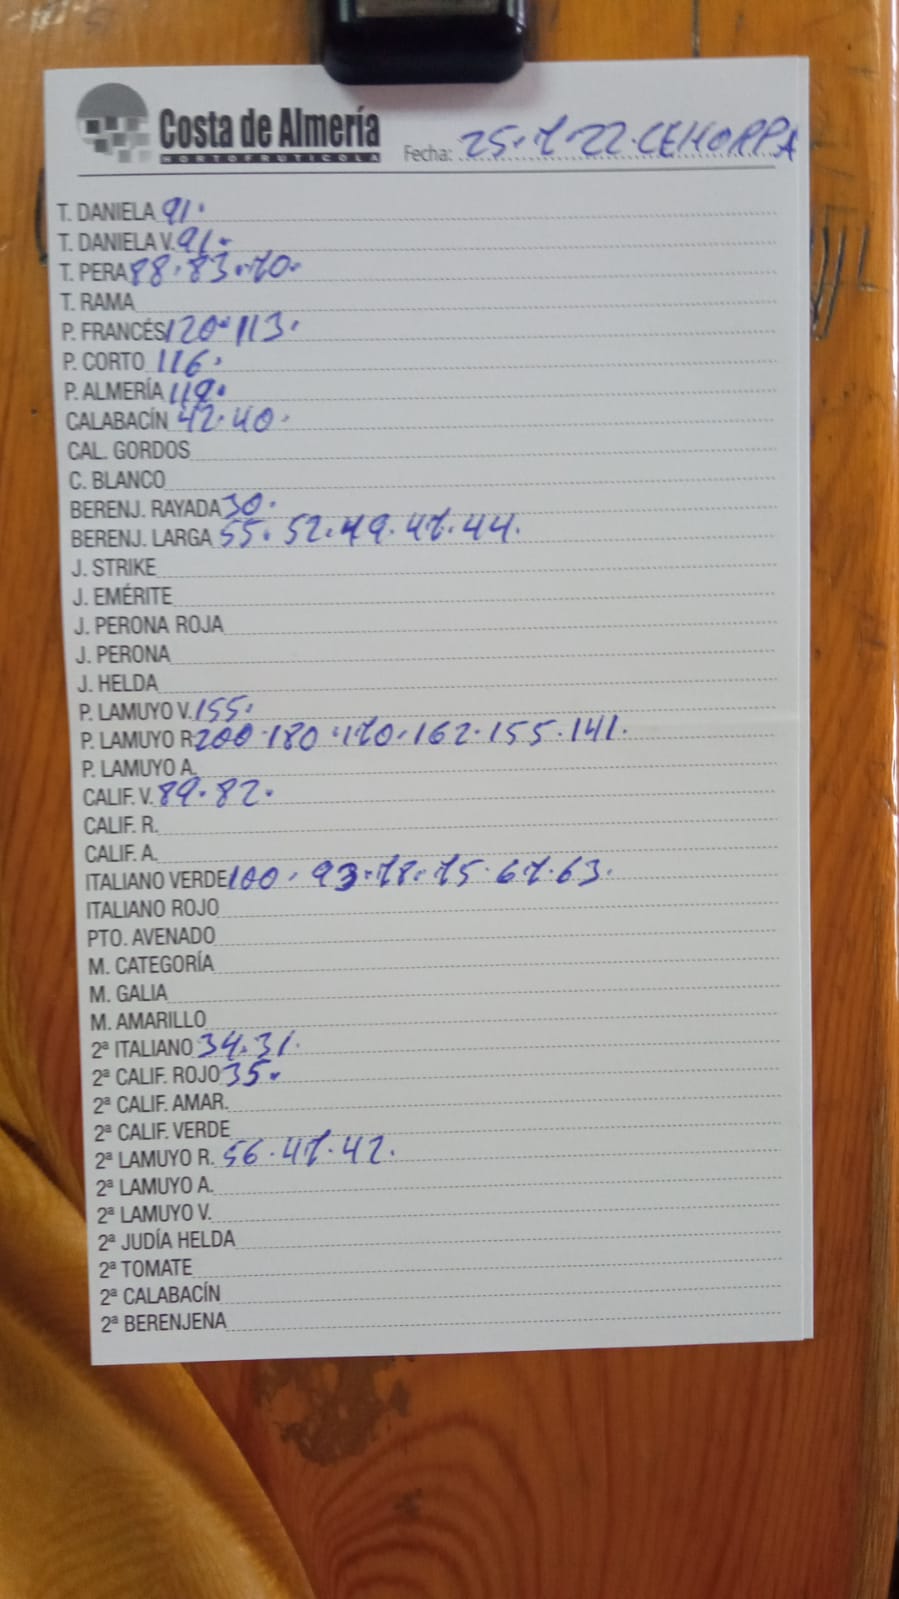 Costa de Almería
HORTOFRUTICOLA
Fecha: 25.7.22.CEHORPA
T. DANIELA 91.
T. DANIELA V. 91.
T. PERA 88.83.70.
T. RAMA
P. FRANCÉS 120.113.
P. CORTO 116.
P. ALMERÍA 119.
CALABACÍN 42.40.
CAL. GORDOS
C. BLANCO
BERENJ. RAYADA 30.
BERENJ. LARGA 55.52.49.47.44.
J. STRIKE
J. EMÉRITE
J. PERONA ROJA
J. PERONA
J. HELDA
P. LAMUYO V. 155.
P. LAMUYO R. 200.180.170.162.155.141.
P. LAMUYO A.
CALIF. V. 89.82.
CALIF. R.
CALIF. A.
ITALIANO VERDE 100.93.78.75.67.63.
ITALIANO ROJO
PTO. AVENADO
M. CATEGORÍA
M. GALIA
M. AMARILLO
2ª ITALIANO 34.31.
2ª CALIF. ROJO 35.
2ª CALIF. AMAR.
2ª CALIF. VERDE
2ª LAMUYO R. 56.47.42.
2ª LAMUYO A.
2ª LAMUYO V.
2ª JUDÍA HELDA
2ª TOMATE
2ª CALABACÍN
2ª BERENJENA